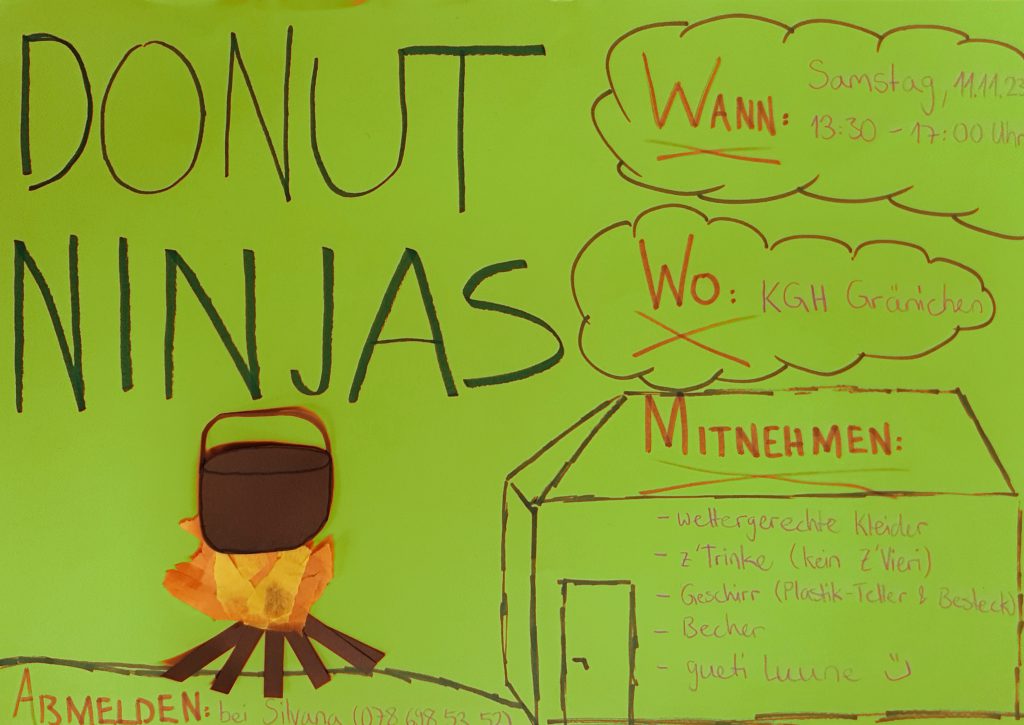 DONUT
NINJAS
WANN: Samstag, 11.11.23
13:30 - 17:00 Uhr
WO: KGH Gränichen
MITNEHMEN:
- wettergerechte Kleider
- z'Trinke (kein Z'Vieri)
- Geschirr (Plastik-Teller & Besteck)
- Becher
- gueti Luune
ABMELDEN: bei Silvana (078 648 53 52)